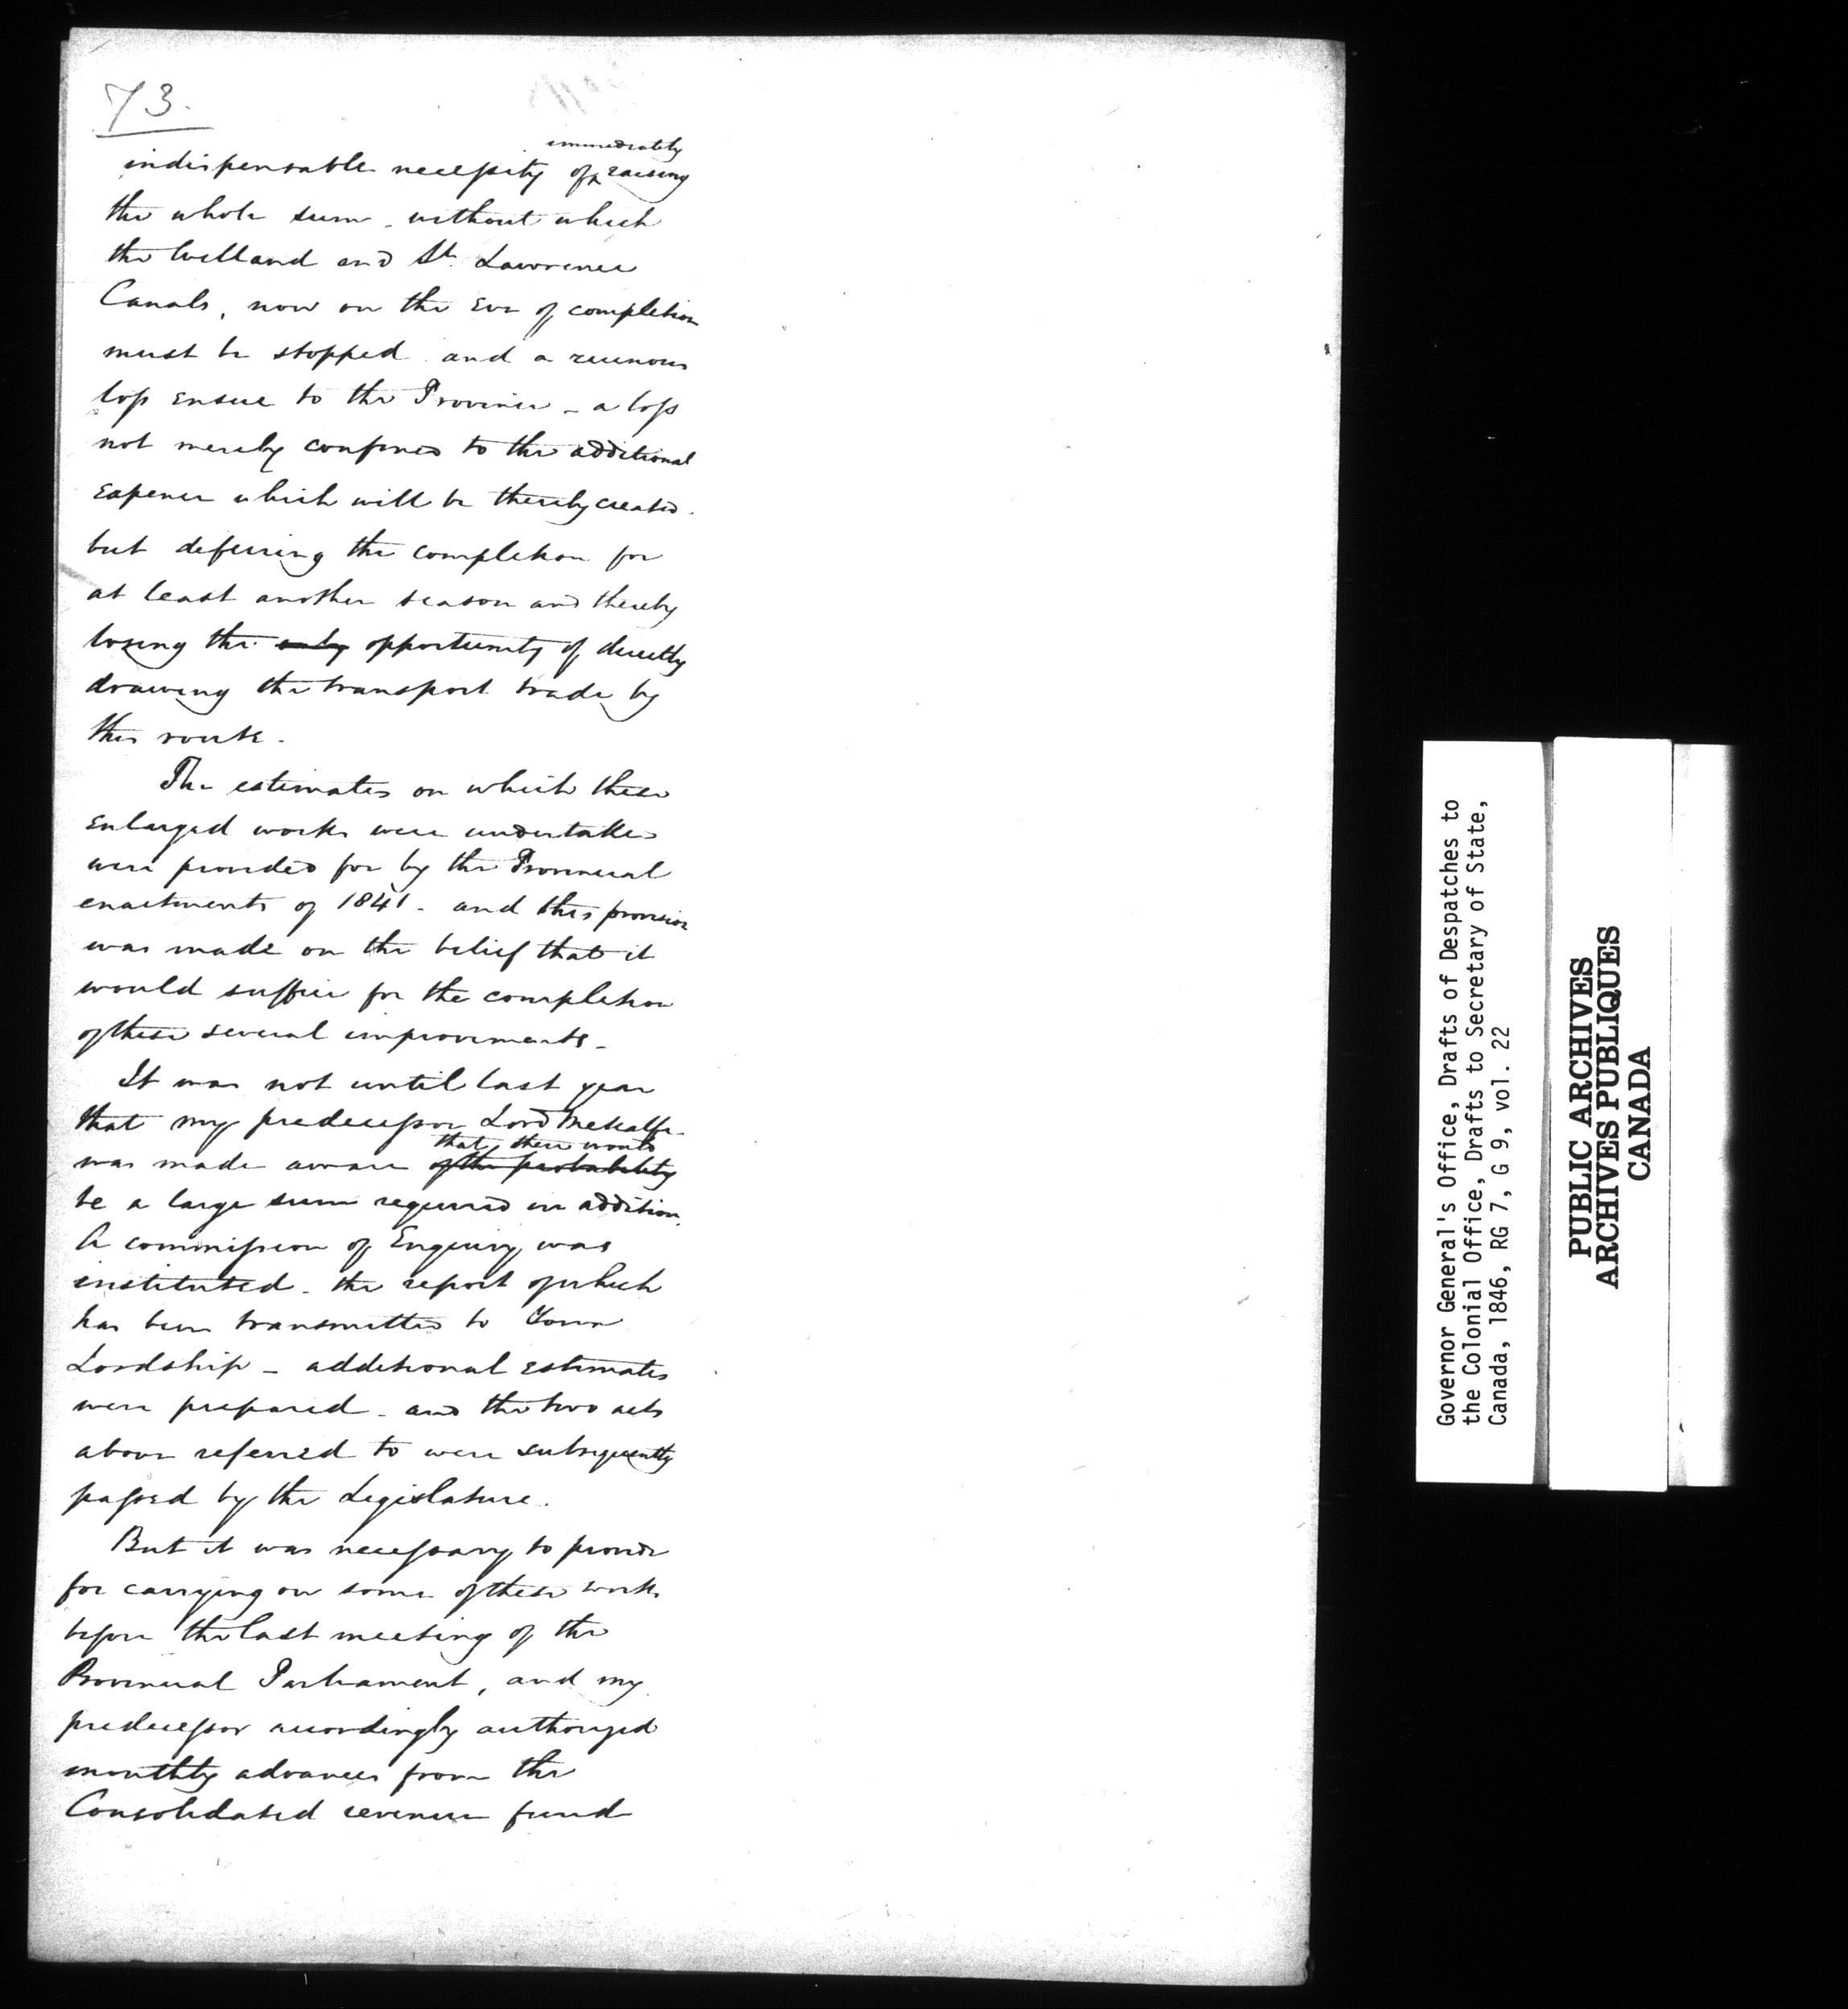 73.
immediately
indispensable necessity of ^ raising
the whole sum - without which
the Welland and St. Lawrence
Canals, now on the eve of completion
must be stopped and a ruinous
loss ensue to the Province - a loss
not merely confined to the additional
expense which will be thereby created.
but deferring the completion for
at least another season and thereby
losing the only opportunity of directly
drawing the transport trade by
this route.
The estimates on which these
enlarged works were undertaken
were provided for by the Provincial
enactments of 1841 - and this provision
was made on the belief that it
would suffice for the completion
of these several improvements -
It was not until last year
that my predecessor Lord Metcalfe
that there would
was made aware of the probability
be a large sum required in addition.
A commission of Enquiry was
instituted - the report of which
has been transmitted to Your
Lordship - additional estimates
were prepared - and the two acts
above referred to were subsequently
passed by the Legislature.
But it was necessary to provide
for carrying on some of these works
before the last meeting of the
Provincial Parliament, and my
predecessor accordingly authorized
monthly advances from the
Consolidated revenue fund
Governor General's Office, Drafts of Despatches to
the Colonial Office, Drafts to Secretary of State,
Canada, 1846, RG 7, G 9, vol. 22
PUBLIC ARCHIVES
ARCHIVES PUBLIQUES
CANADA